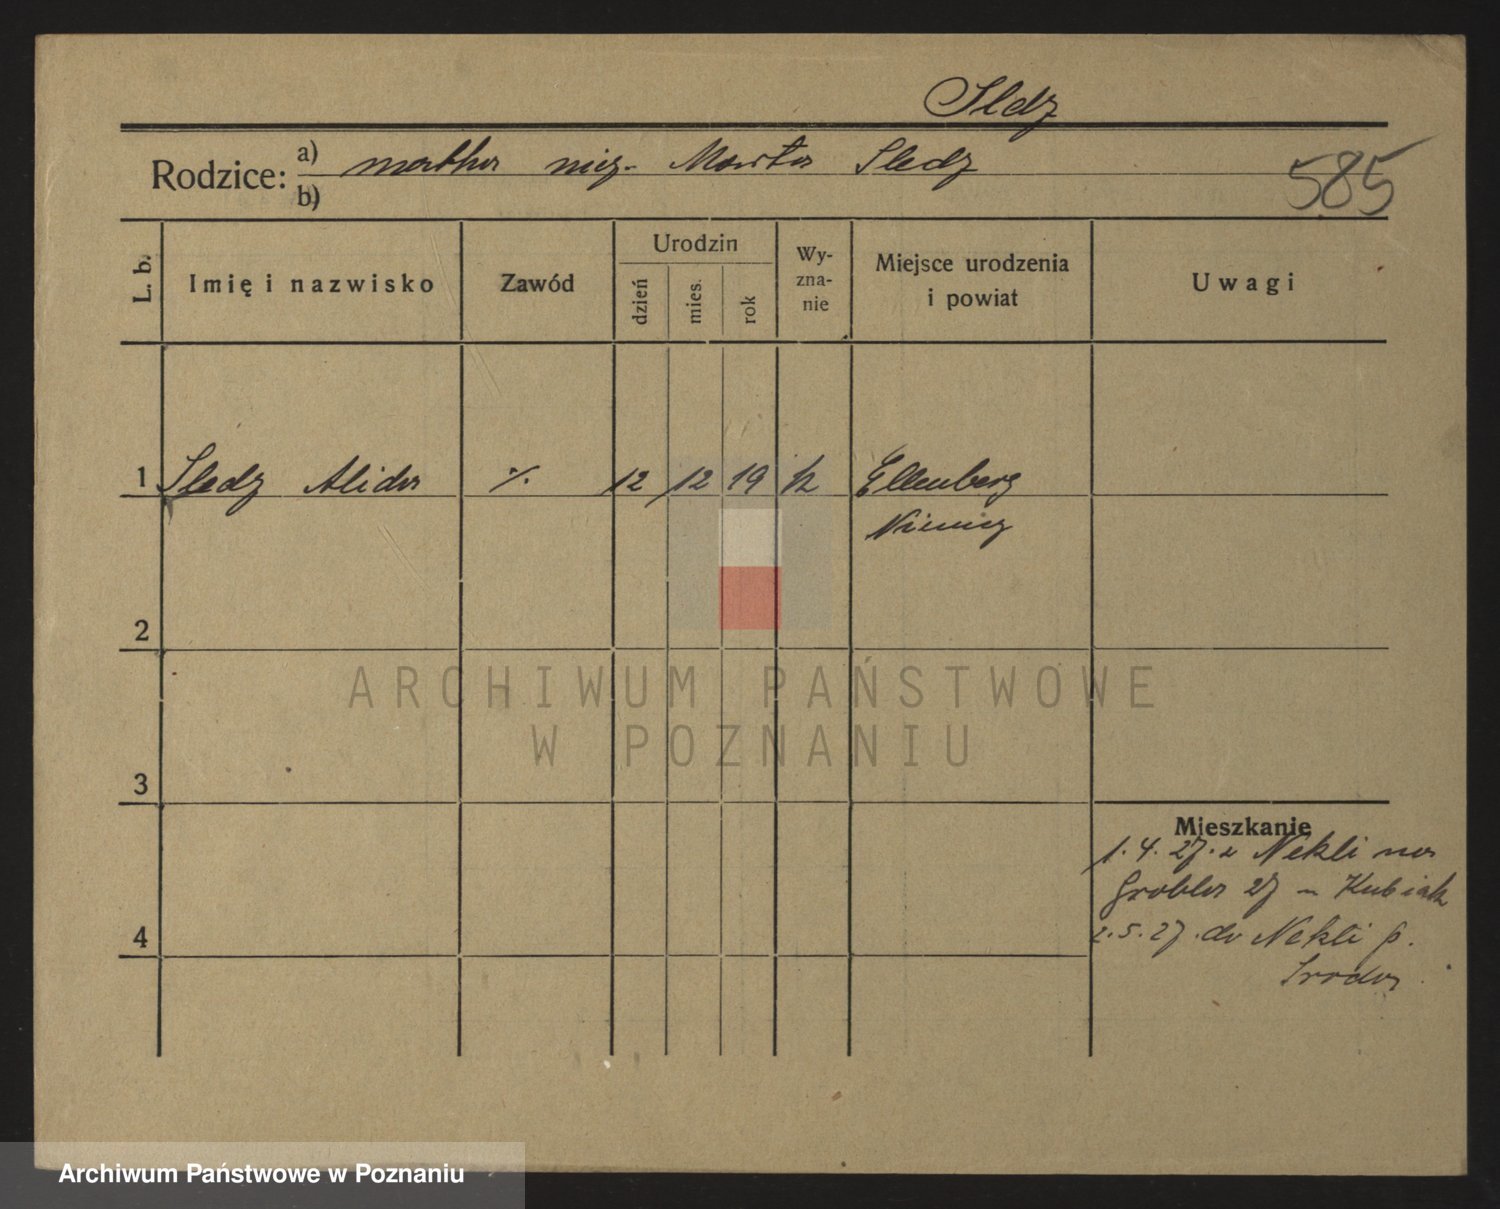 Sledz
Rodzice: a) matka niez. Marta Sledz
b)
585
L. b.
Imię i nazwisko
Zawód
Urodzin
dzień
mies.
rok
Wy-
zna-
nie
Miejsce urodzenia
i powiat
Uwagi
1 Sledz Alida ·/. 12 12 19 k Ellenberg
Niemcy
2
ARCHIWUM PAŃSTWOWE
W POZNANIU
3
Mieszkanie
1.4.27. z Nekli na
Grobla 27 Kubiak
2.5.27. do Nekli p.
Sroda
4
Archiwum Państwowe w Poznaniu